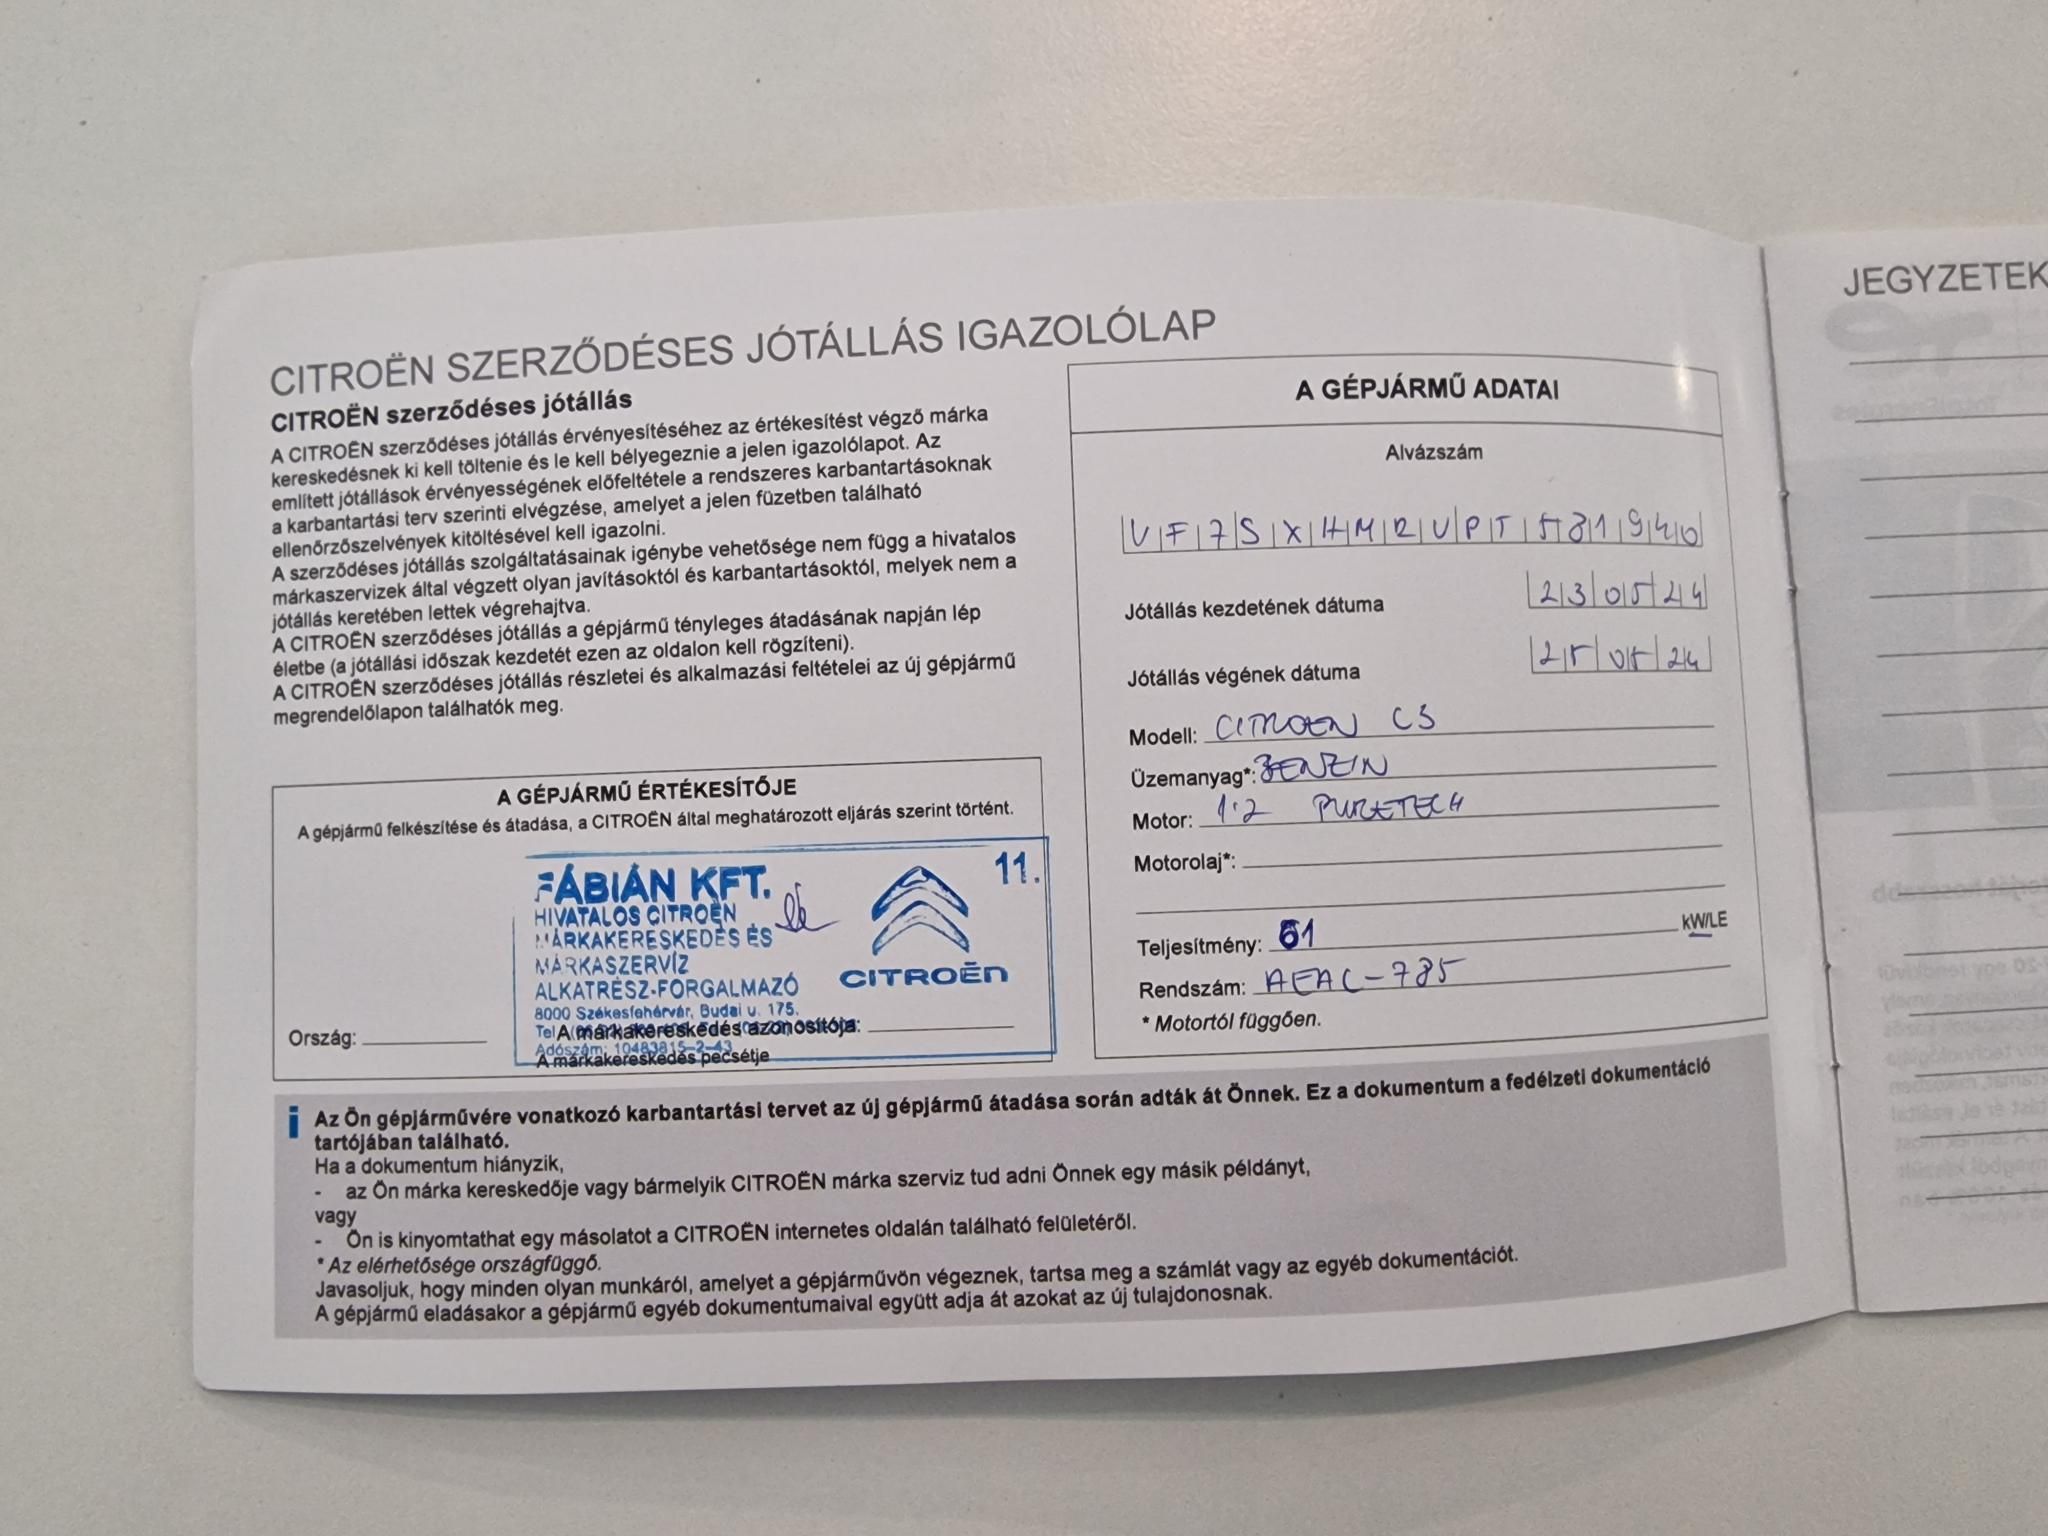 CITROËN SZERZŐDÉSES JÓTÁLLÁS IGAZOLÓLAP
CITROËN szerződéses jótállás
A CITROËN szerződéses jótállás érvényesítéséhez az értékesítést végző márka
kereskedésnek ki kell töltenie és le kell bélyegeznie a jelen igazolólapot. Az
említett jótállások érvényességének előfeltétele a rendszeres karbantartásoknak
a karbantartási terv szerinti elvégzése, amelyet a jelen füzetben található
ellenőrzőszelvények kitöltésével kell igazolni.
A szerződéses jótállás szolgáltatásainak igénybe vehetősége nem függ a hivatalos
márkaszervizek által végzett olyan javításoktól és karbantartásoktól, melyek nem a
jótállás keretében lettek végrehajtva.
A CITROËN szerződéses jótállás a gépjármű tényleges átadásának napján lép
életbe (a jótállási időszak kezdetét ezen az oldalon kell rögzíteni).
A CITROËN szerződéses jótállás részletei és alkalmazási feltételei az új gépjármű
megrendelőlapon találhatók meg.
A GÉPJÁRMŰ ÉRTÉKESÍTŐJE
A gépjármű felkészítése és átadása, a CITROËN által meghatározott eljárás szerint történt.
FÁBIÁN KFT.
11.
HIVATALOS CITROËN
MÁRKAKERESKEDÉS ÉS
MÁRKASZERVÍZ
ALKATRÉSZ-FORGALMAZÓ
CITROËN
8000 Székesfehérvár, Budai u. 175.
Tel
Adószám: 10483815-2-43
Ország:
A márkakereskedés azonosítója:
A márkakereskedés pecsétje
A GÉPJÁRMŰ ADATAI
Alvázszám
VF7SXHMRUPT581940
Jótállás kezdetének dátuma 230524
Jótállás végének dátuma 250524
Modell: CITROEN C3
Üzemanyag*: BENZIN
Motor: 1.2 PURETECH
Motorolaj*:
Teljesítmény: 61 kW/LE
Rendszám: AEAC-785
* Motortól függően.
i Az Ön gépjárművére vonatkozó karbantartási tervet az új gépjármű átadása során adták át Önnek. Ez a dokumentum a fedélzeti dokumentáció
tartójában található.
Ha a dokumentum hiányzik,
- az Ön márka kereskedője vagy bármelyik CITROËN márka szerviz tud adni Önnek egy másik példányt,
vagy
- Ön is kinyomtathat egy másolatot a CITROËN internetes oldalán található felületéről.
* Az elérhetősége országfüggő.
Javasoljuk, hogy minden olyan munkáról, amelyet a gépjárművön végeznek, tartsa meg a számlát vagy az egyéb dokumentációt.
A gépjármű eladásakor a gépjármű egyéb dokumentumaival együtt adja át azokat az új tulajdonosnak.
JEGYZETEK